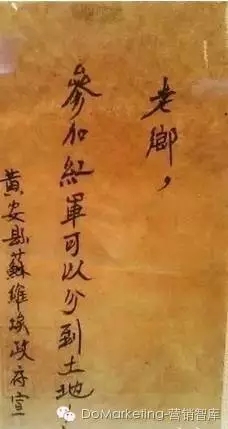 老鄉，
參加紅軍可以分到土地
黄安縣蘇維埃政府宣
DoMarketing-营销智库